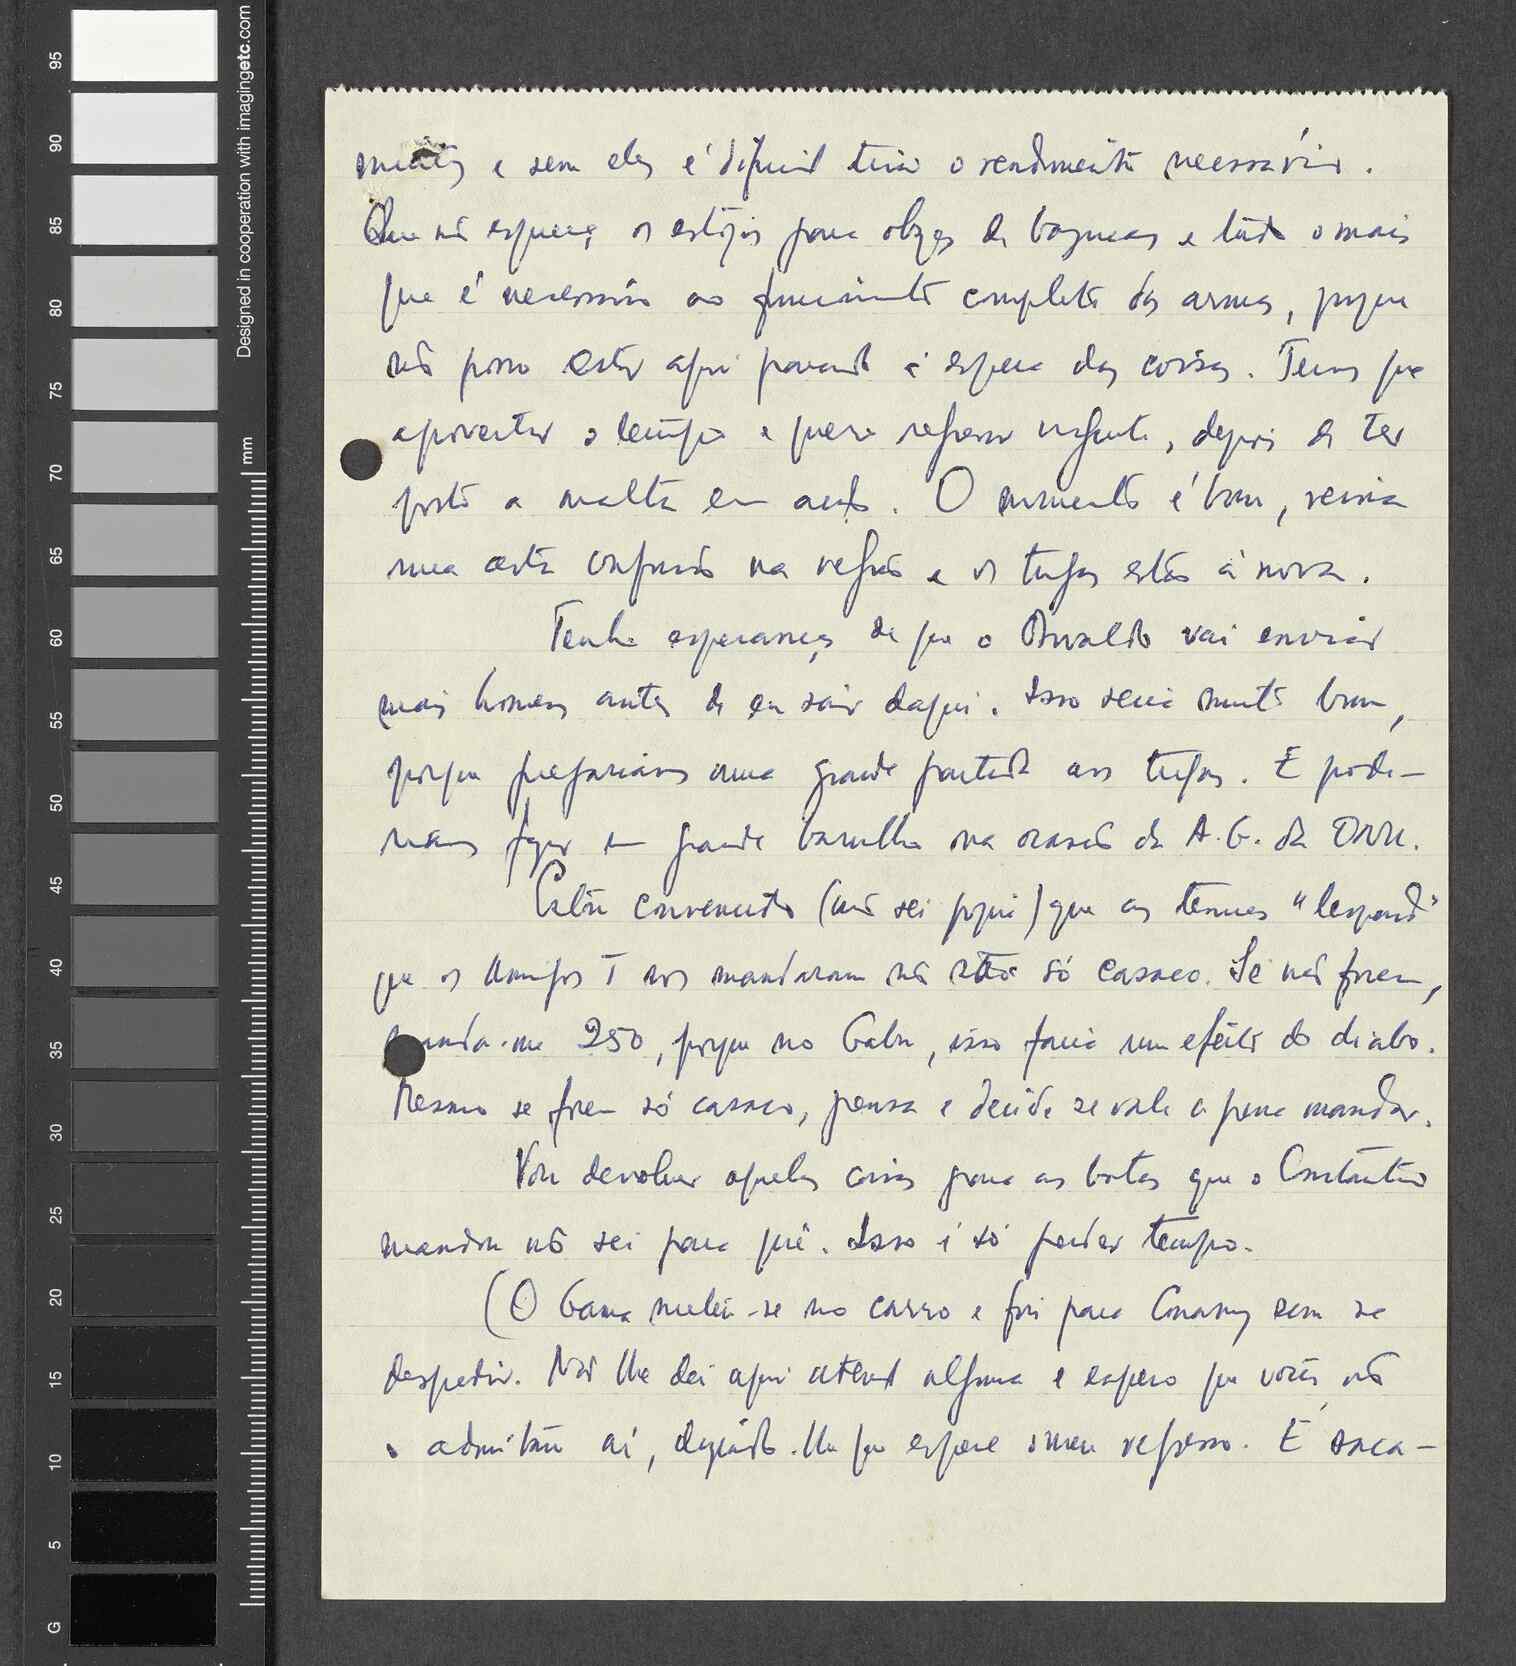 Designed in cooperation with imagingetc.com
mm
95
90
85
80
75
70
65
60
55
50
45
40
35
30
25
20
15
10
5
G
muitos e sem eles é difícil tirar o rendimento necessário.
Que não esqueça os estojos para obuzes de bazucas e tudo o mais
que é necessário ao funcionamento completo das armas, porque
não posso estar aqui parado à espera das coisas. Temos que
aproveitar o tempo e quero regressar urgente, depois de ter
posto a malta em acção. O momento é bom, reina
uma certa confusão na região e os tugas estão à nora.
Tenho esperanças de que o Osvaldo vai enviar
mais homens antes de eu sair daqui. Isso seria muito bom,
porque pregaríamos uma grande partida aos tugas. E pode-
ríamos fazer um grande barulho na ocasião da A.G. da ONU.
Estou convencido (não sei porquê) que os ternos "leopard"
que os Amigos T nos mandaram não são só casaco. Se não forem,
manda-me 250, porque no Gabu, isso faria um efeito do diabo.
Mesmo se forem só casaco, pensa e decide se vale a pena mandar.
Vou devolver aquelas coisas para as botas que o Constantino
mandou não sei para quê. Isso é só perder tempo.
(O Gama meteu-se no carro e foi para Conakry sem se
despedir. Não lhe dei aqui atenção alguma e espero que vocês não
o admitam aí, dizendo-lhe que espere o meu regresso. E saca-